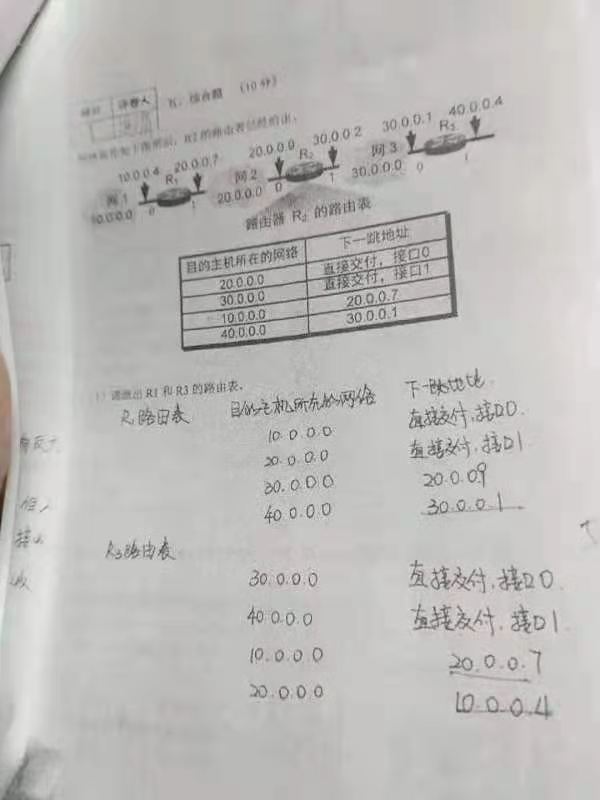 评卷人
五、综合题 （10 分）
10.0.0.4 20.0.0.7 20.0.0.9 30.0.0.2 30.0.0.1 40.0.0.4
R1 R2 R3
网 1 网 2 网 3
10.0.0.0 0 1 20.0.0.0 0 1 30.0.0.0 0 1
路由器 R2 的路由表
目的主机所在的网络 下一跳地址
20.0.0.0 直接交付，接口0
30.0.0.0 直接交付，接口1
10.0.0.0 20.0.0.7
40.0.0.0 30.0.0.1
R1 和 R3 的路由表。
R1路由表 目的主机所在的网络 下一跳地址
10.0.0.0 直接交付，接口0.
20.0.0.0 直接交付，接口1
30.0.0.0 20.0.09
40.0.0.0 30.0.0.1
R3路由表
30.0.0.0 直接交付，接口0.
40.0.0.0 直接交付，接口1.
10.0.0.0 20.0.0.7
20.0.0.0 10.0.0.4